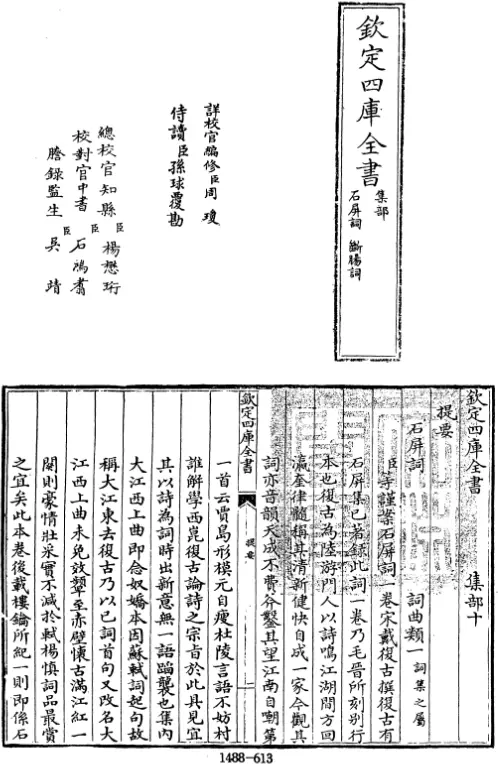 欽定四庫全書
集部
石屏詞 斷腸詞
詳校官編修臣周瓊
侍讀臣孫球覆勘
總校官知縣臣楊懋珩
校對官中書臣石鴻翥
謄錄監生臣吳靖
欽定四庫全書 集部十
提要
石屏詞 詞曲類一詞集之屬
臣等謹案石屏詞一卷宋戴復古撰復古有
石屏集已著錄此詞一卷乃毛晉所刻別行
本也復古為陸游門人以詩鳴江湖間方回
瀛奎律髓稱其清新健快自成一家今觀其
詞亦音韻天成不費斧鑿其望江南自嘲第
欽定四庫全書 提要 一
一首云賈島形模元自瘦杜陵言語不妨村
誰解學西崑復古論詩之宗旨於此具見宜
其以詩為詞時出新意無一語蹈襲也集內
大江西上曲即念奴嬌本因蘇軾詞起句故
稱大江東去復古乃以己詞首句又改名大
江西上曲未免效顰至赤壁懷古滿江紅一
闋則豪情壯采實不減於軾楊慎詞品最賞
之宜矣此本卷後載樓鑰所紀一則即係石
1488-613